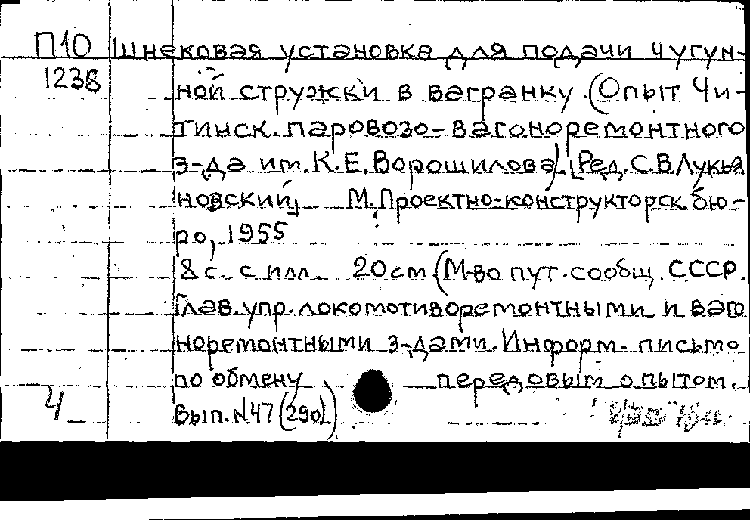 П10 Шнековая установка для подачи чугун-
1238 ной стружки в вагранку. (Опыт Чи-
тинск. паровозо-вагоноремонтного
з-да им. К.Е. Ворошилова) [Ред. С.В. Лукья
новский] М. Проектно-конструкторск. бю-
ро, 1955
8 с. с илл. 20 см (М-во пут. сообщ. СССР.
Глав. упр. локомотиворемонтными и ваго
норемонтными з-дами. Информ. письмо
по обмену передовым опытом.
Ч Вып. №47 (290))